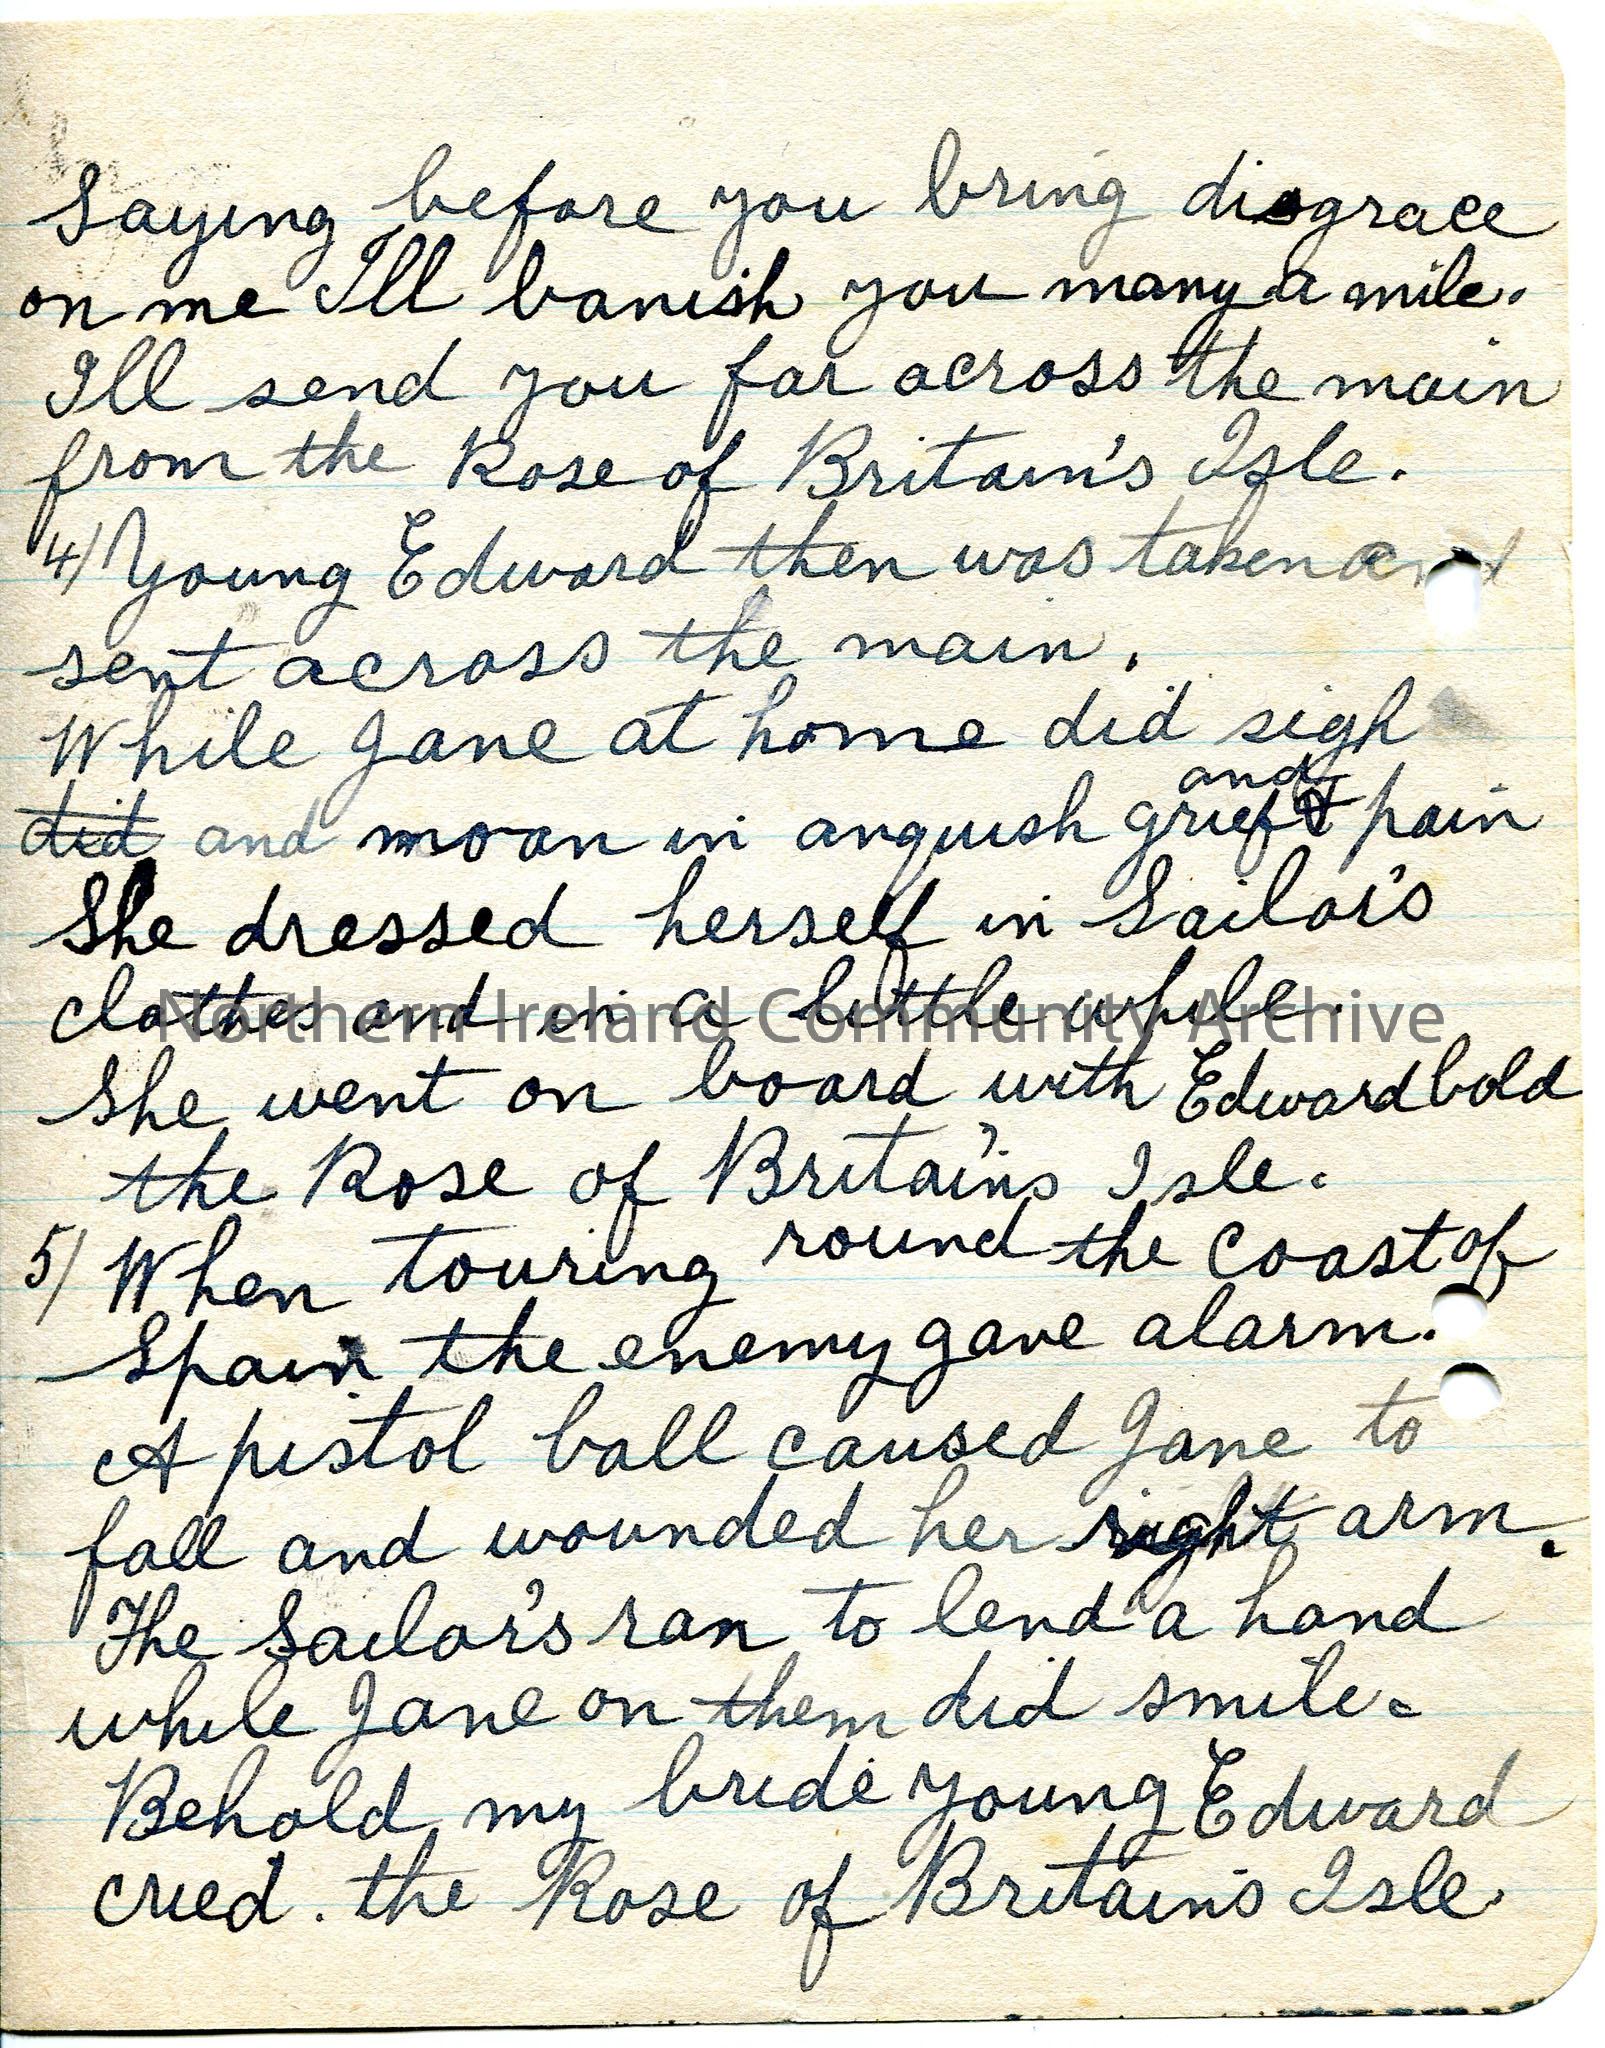 Saying before you bring disgrace
on me I'll banish you many a mile.
I'll send you far across the main
from the Rose of Britain's Isle.
4) Young Edward then was taken and
sent across the main.
While Jane at home did sigh
and
did and moan in anguish grief & pain
She dressed herself in Sailor's
clothes and in a little while.
Northern Ireland Community Archive
She went on board with Edward bold
the Rose of Britain's Isle.
5) When touring round the coast of
Spain the enemy gave alarm.
A pistol ball caused Jane to
fall and wounded her right arm.
The Sailor's ran to lend a hand
while Jane on them did smile.
Behold my bride young Edward
cried. the Rose of Britain's Isle.